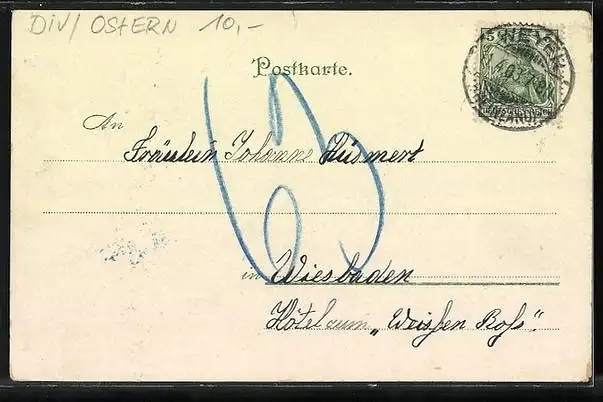 DIV/ OSTERN 10,-
5
Postkarte.
An
Fräulein Johanne Hüsmert
in Wiesbaden
Hôtel zum „Weissen Ross".